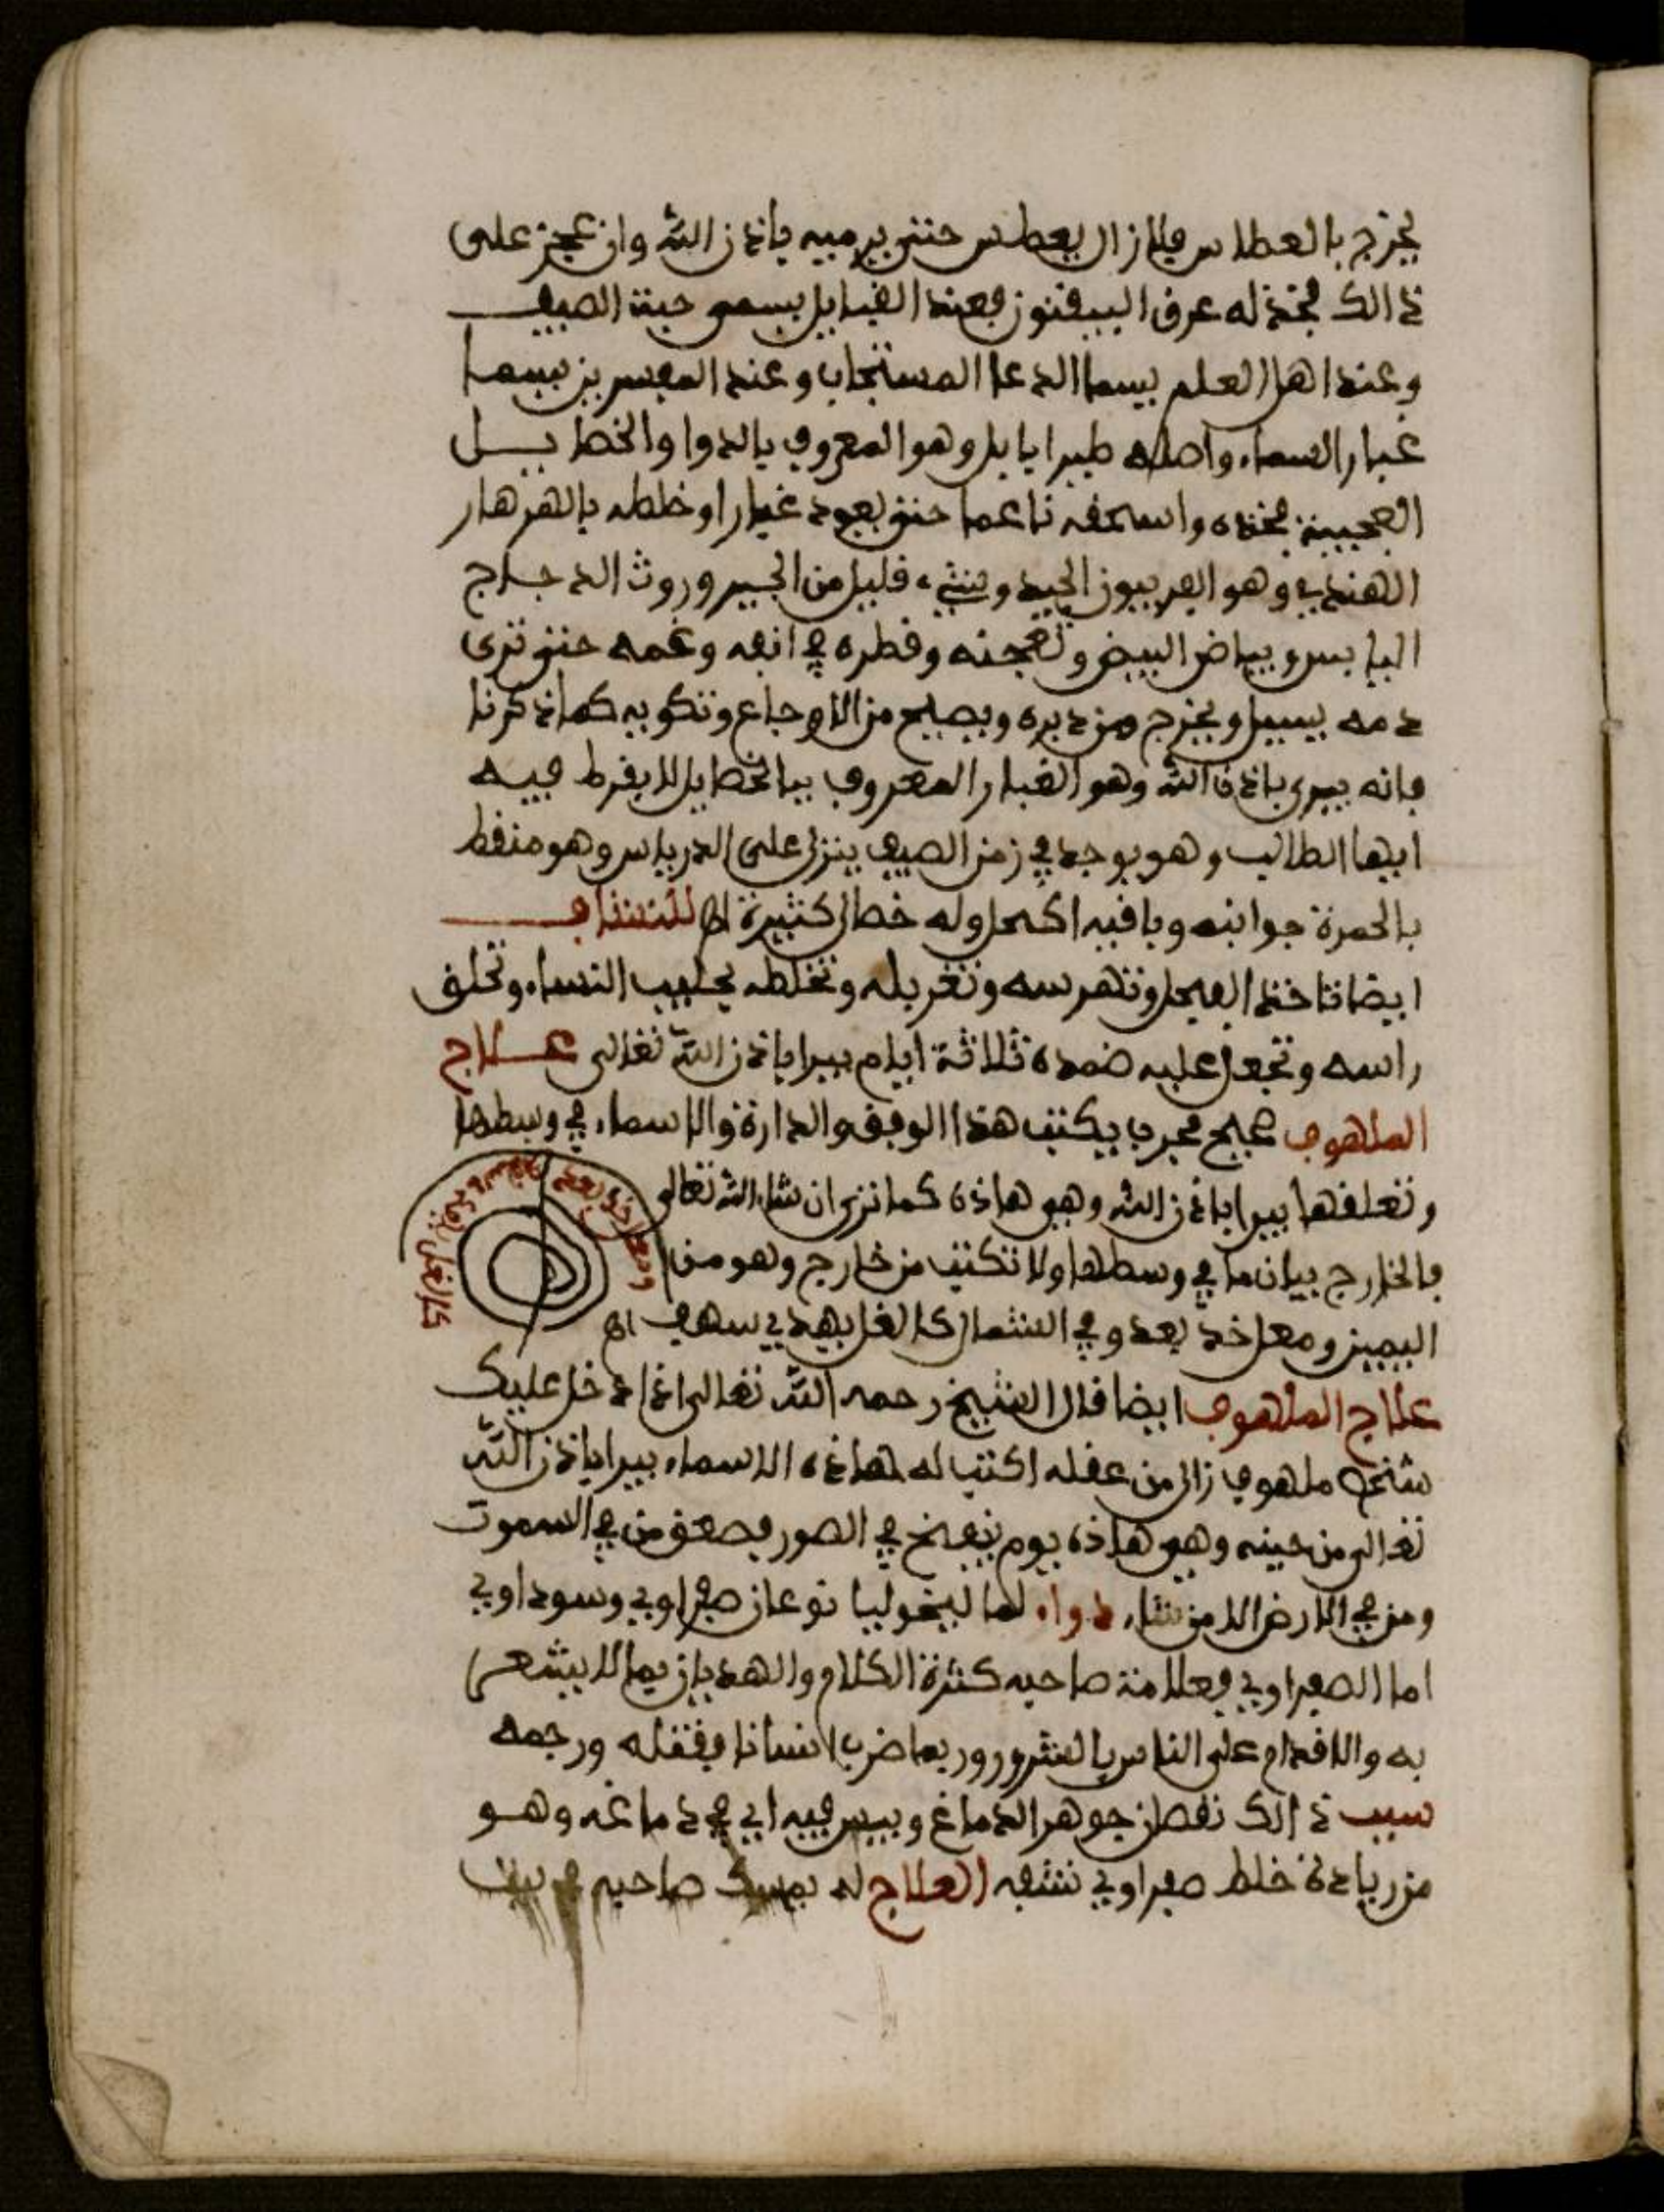 يخرج بالعطاس فلازال يعطس حتى يرميه باذن الله وان عجز على
ذالك فخذ له عرق البيفنوز فعند القبايل يسمى حبة الصيف
وعند اهل العلم يسما الدعا المستجاب وعند المفسرين يسما
غبار السماء واصله طيرا بابل وهو المعروف بالدوا والخطايل
العجيبة فخذه واسحقه ناعما حتى يعود غبارا وخلطه بالهرهار
الهندي وهو الفربيون الجيد وشيء قليل من الجير وروث الدجاج
اليابس وبياض البيض وتعجنه وقطره في انفه وغمه حتى ترى
دمه يسيل ويخرج من دبره ويصيح من الاوجاع وتكويه كما ذكرنا
فانه يبرى باذن الله وهو الغبار المعروف بالخطايل لا يفرط فيه
ايها الطالب وهو يوجد في زمن الصيف ينزل على الدرياس وهو منقط
بالحمرة جوانبه وباقيه اكحل وله خصال كثيرة اهـ للشقاف
ايضا تاخذ الفيجل وتهرسه وتغربله وتخلطه بحليب النساء وتحلق
راسه وتجعل عليه ضمدة ثلاثة ايام يبرا باذن الله تعالى علاج
الملهوف صحيح مجرب يكتب هذا الوفق والدارة والاسماء في وسطها
وتعلقها يبرا باذن الله وهي هاذه كما ترى ان شاء الله تعالى
فالخارج بيان ما في وسطها ولا تكتب من خارج وهو من
اليمين ومعل خد يعد وفي الشمال كالغل يهدي سهف اهـ
علاج الملهوف ايضا قال الشيخ رحمه الله تعالى اذا دخل عليك
شخص ملهوف زال من عقله اكتب له هاذه الاسماء يبرا باذن الله
تعالى من حينه وهي هاذه يوم ينفخ في الصور فصعق من في السموت
ومن في الارض الا من شاء دواء لما ليخوليا نوعان صفراوي وسوداوي
اما الصفراوي فعلامة صاحبه كثرة الكلام والهذيان بما لا يشعر
به والاقدام على الناس بالشرور وربما ضرب انسانا فقتله ورجمه
سبب ذالك نقصان جوهر الدماغ ويبس فيه اي في دماغه وهو
من زيادة خلط صفراوي نشفه العلاج له يمسك صاحبه في بيت